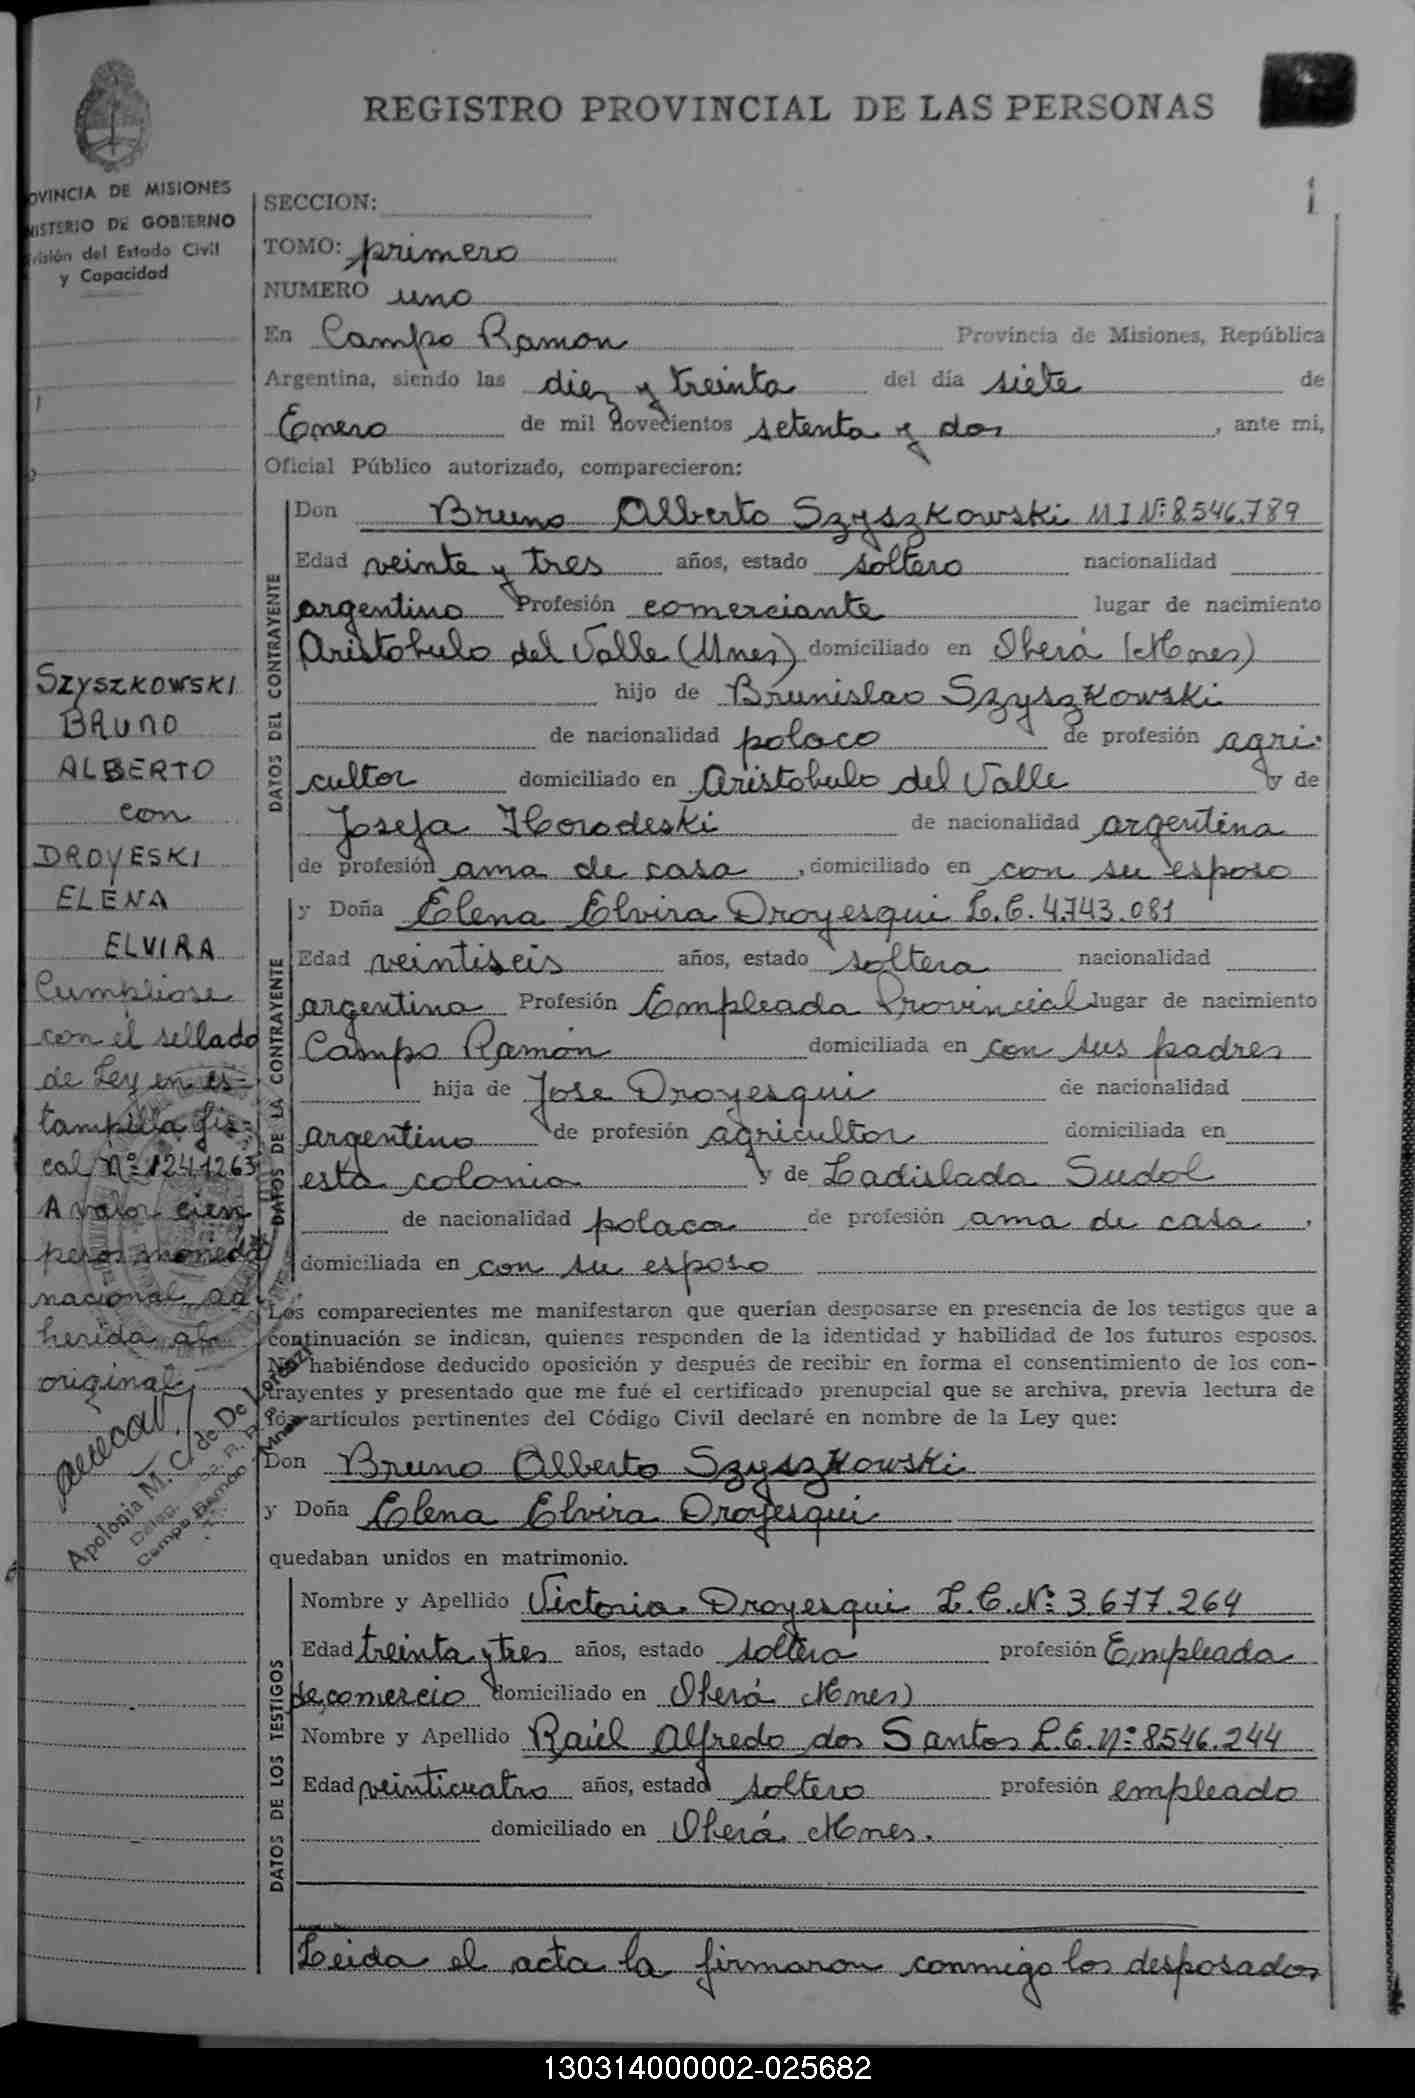 REGISTRO PROVINCIAL DE LAS PERSONAS
OVINCIA DE MISIONES
NISTERIO DE GOBIERNO
visión del Estado Civil
y Capacidad
1
SECCION:
TOMO: primero
NUMERO uno
En Campo Ramon Provincia de Misiones, República
Argentina, siendo las diez y treinta del día siete de
Enero de mil novecientos setenta y dos, ante mi,
Oficial Público autorizado, comparecieron:
DATOS DEL CONTRAYENTE
Don Bruno Alberto Szyszkowski M I Nº 8.546.789
Edad veinte y tres años, estado soltero nacionalidad
argentino Profesión comerciante lugar de nacimiento
Aristobulo del Valle (Mnes) domiciliado en Oberá (Mnes)
hijo de Brunislao Szyszkowski
de nacionalidad polaco de profesión agri-
cultor domiciliado en Aristobulo del Valle y de
Josefa Horodeski de nacionalidad argentina
de profesión ama de casa, domiciliado en con su esposo
DATOS DE LA CONTRAYENTE
y Doña Elena Elvira Droyesqui L.C. 4.743.081
Edad veintiseis años, estado soltera nacionalidad
argentina Profesión Empleada Provincial lugar de nacimiento
Campo Ramón domiciliada en con sus padres
hija de Jose Droyesqui de nacionalidad
argentino de profesión agricultor domiciliada en
esta colonia y de Ladislada Sudol
de nacionalidad polaca de profesión ama de casa,
domiciliada en con su esposo
Los comparecientes me manifestaron que querían desposarse en presencia de los testigos que a
continuación se indican, quienes responden de la identidad y habilidad de los futuros esposos.
No habiéndose deducido oposición y después de recibir en forma el consentimiento de los con-
trayentes y presentado que me fué el certificado prenupcial que se archiva, previa lectura de
los artículos pertinentes del Código Civil declaré en nombre de la Ley que:
Don Bruno Alberto Szyszkowski
y Doña Elena Elvira Droyesqui
quedaban unidos en matrimonio.
DATOS DE LOS TESTIGOS
Nombre y Apellido Victoria Droyesqui L.C. Nº 3.677.264
Edad treinta y tres años, estado soltera profesión Empleada
de comercio domiciliado en Oberá Mnes)
Nombre y Apellido Raúl Alfredo dos Santos L.E. Nº 8546.244
Edad veinticuatro años, estado soltero profesión empleado
domiciliado en Oberá Mnes.
Leida el acta la firmaron conmigo los desposados
SZYSZKOWSKI
BRUNO
ALBERTO
con
DROYESKI
ELENA
ELVIRA
Cumpliose
con el sellado
de Ley en es-
tampilla fis-
cal Nº 1241263
A valor cien
pesos moneda
nacional ad-
herida al
original
Apolonia M. C. de De
Campo Ramón
130314000002-025682